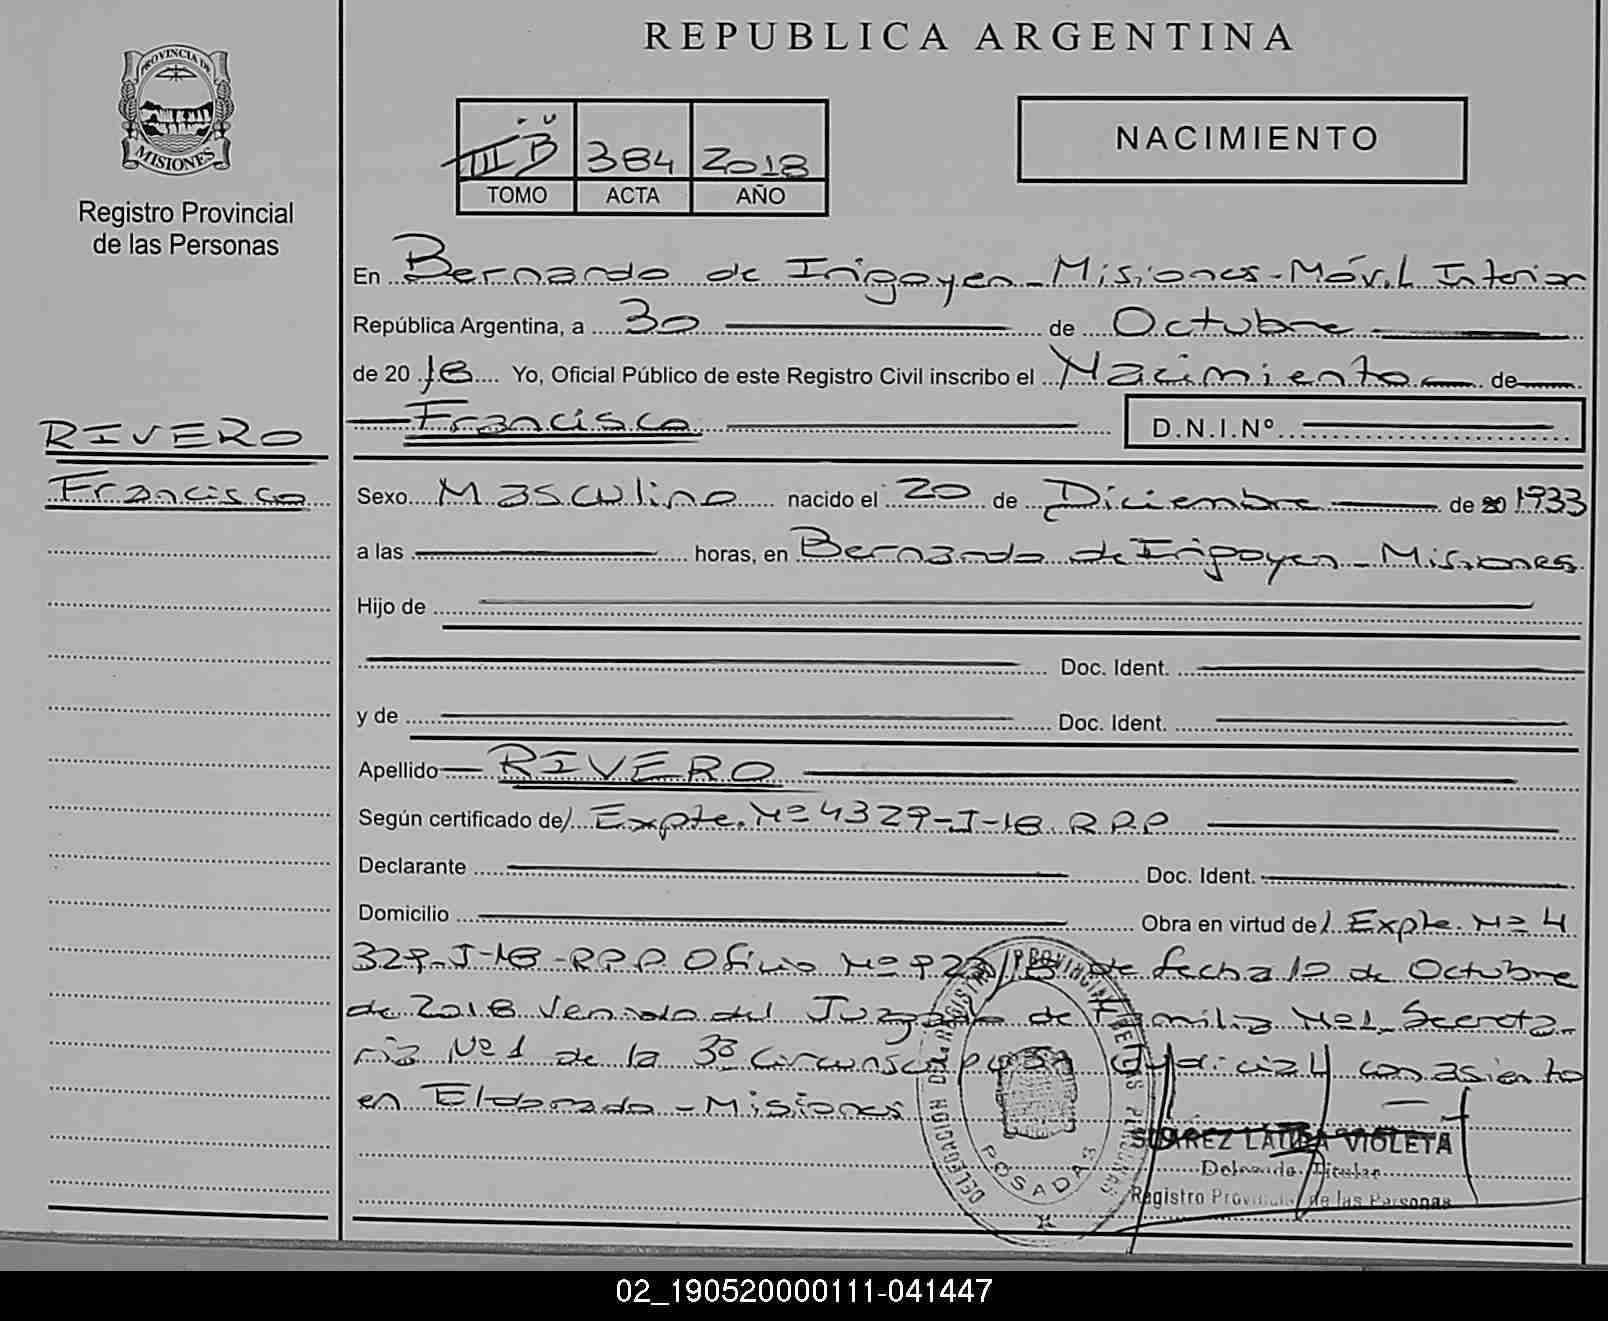 REPUBLICA ARGENTINA
PROVINCIA DE
MISIONES
Registro Provincial
de las Personas
III B 384 2018
TOMO ACTA AÑO
NACIMIENTO
En Bernardo de Irigoyen - Misiones - Móvil Interior
República Argentina, a 30 de Octubre
de 2018 Yo, Oficial Público de este Registro Civil inscribo el Nacimiento de
Francisco D.N.I.Nº
RIVERO
Francisco
Sexo Masculino nacido el 20 de Diciembre de 20 1933
a las horas, en Bernardo de Irigoyen - Misiones
Hijo de
Doc. Ident.
y de Doc. Ident.
Apellido RIVERO
Según certificado de/ Expte. Nº 4329-J-18 RPP
Declarante Doc. Ident.
Domicilio Obra en virtud de/ Expte. Nº 4
329-J-18-RPP Oficio Nº de fecha 10 de Octubre
de 2018 Venido del Juzgado de Familia Nº 1, Secreta
ria Nº 1 de la 3ª Circunscripción Judicial con asiento
en Eldorado - Misiones
SUAREZ LAURA VIOLETA
Delegada Titular
Registro Provincial de las Personas
POSADAS
02_190520000111-041447